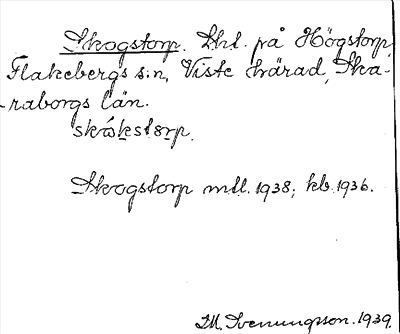 Skogstorp. Lht. på Högstorp,
Flakebergs s:n, Viste härad, Ska-
raborgs län.
skókstɵrp.
Skogstorp mtl. 1938; kb. 1936.
M. Svenungsson. 1939.